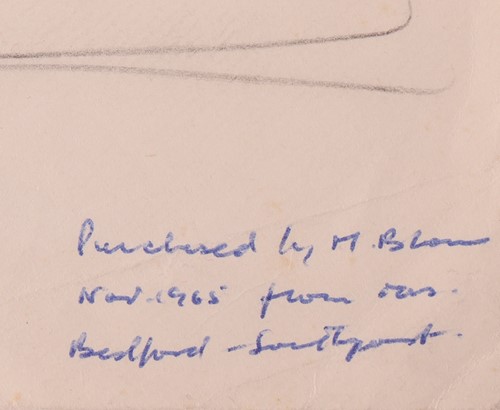 Purchased by M. Blown
Nov. 1965 from Mrs.
Bedford - Southport.